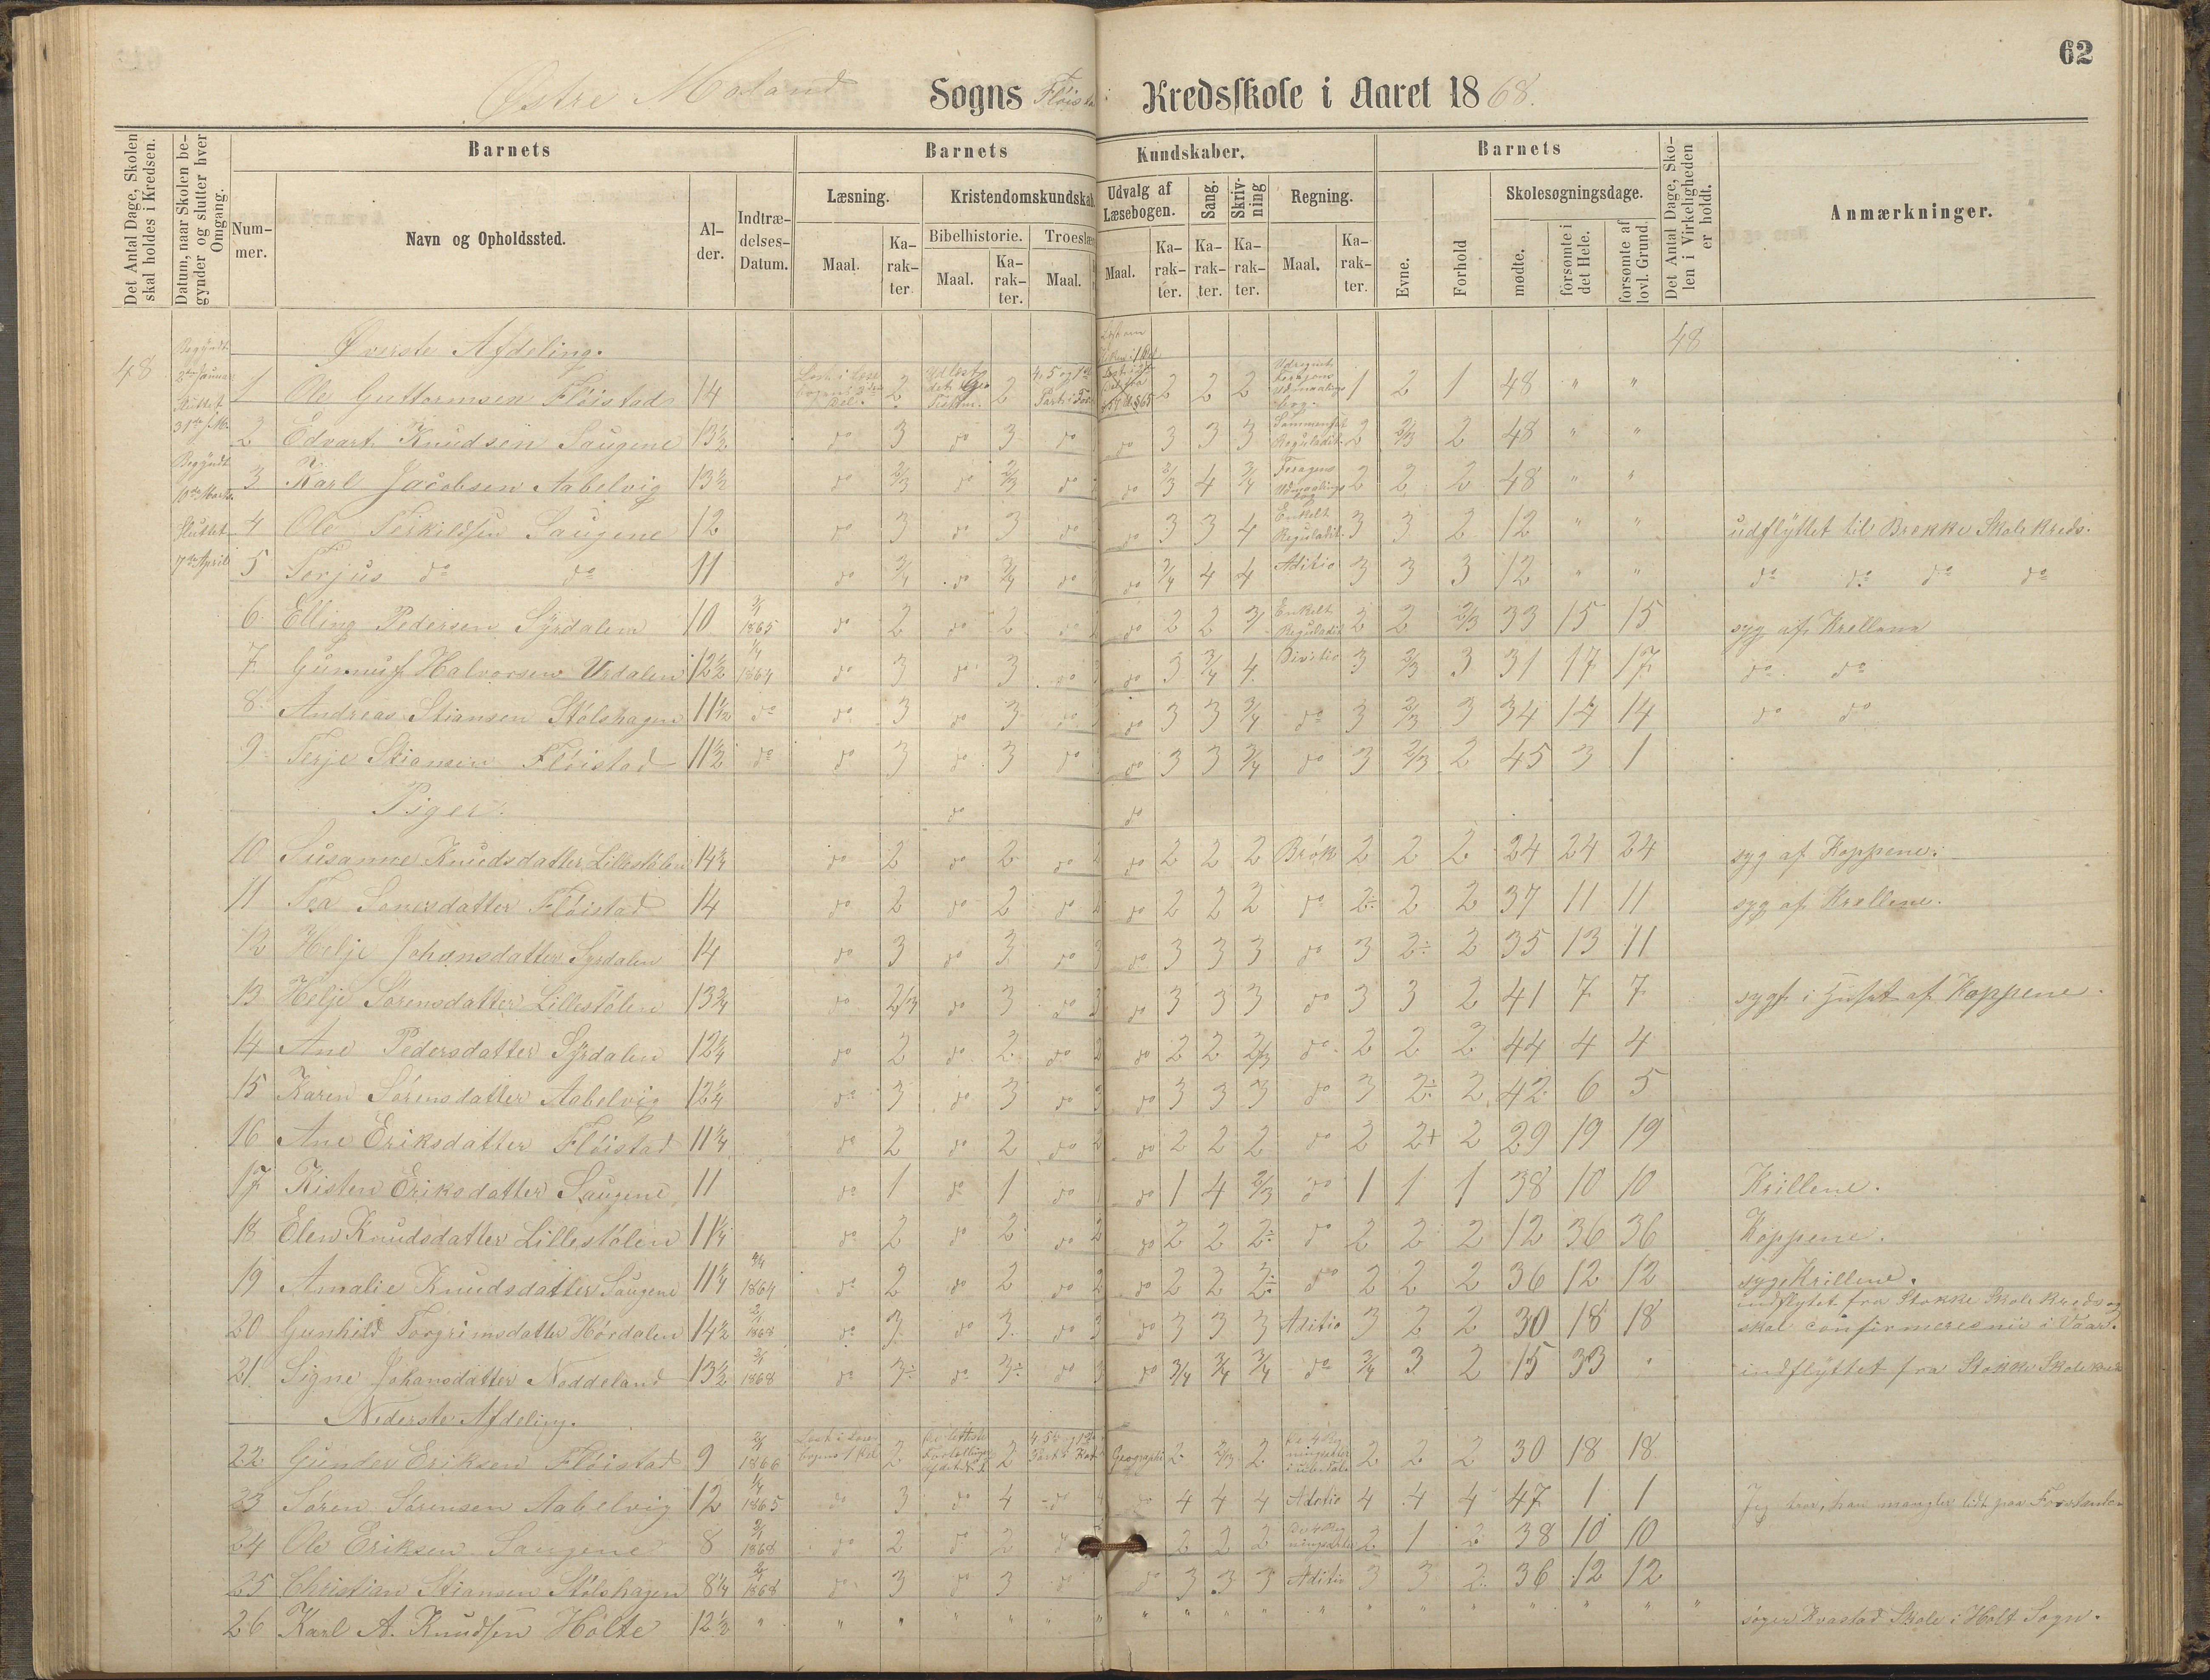 62
Østre Moland Sogns Fløista Kredsskole i Aaret 1868.
Det Antal Dage, Skolen skal holdes i Kredsen.
Datum, naar Skolen begynder og slutter hver Omgang.
Barnets
Nummer.
Navn og Opholdssted.
Alder.
Indtrædelses-Datum.
Barnets Kundskaber.
Læsning.
Maal.
Karakter
Kristendomskundskab
Bibelhistorie.
Maal.
Karakter.
Troeslær
Maal.
Udvalg af Læsebogen.
Maal.
Karakter.
Sang.
Karakter.
Skrivning
Karakter.
Regning.
Maal.
Karakter.
Barnets
Evne.
Forhold
Skolesøgningsdage.
mødte.
forsømte i det Hele.
forsømte af lovl. Grund.
Det Antal Dage, Skolen i Virkeligheden er holdt.
Anmærkninger.
Øverste Afdeling. 48
48 Begyndt Sluttet 31te Begyndt 10de Marts Sluttet 7de April
1 Ole Guttormsen Fløistad 14 2 2 2 2 2 1 2 1 48 " "
2 Edvart Knudsen Saugene 13½ do 3 do 3 do do 3 3 3 Sammensat Reguladit 2 2/3 2 48 " "
3 Karl Jacobsen Aabelvig 13½ do 2/3 do 2/3 do do 2/3 4 3/4 2 2 2 48 " "
4 Ole Terkildsen Saugene 12 do 3 do 3 do do 3 3 4 Enkelt Reguladit. 3 3 2 12 " " udflyttet til Brekke Skolekreds.
5 Terjus do do 11 do 3/4 do 3/4 do do 3/4 4 4 Aditio 3 3 3 12 " " do do do do
6 Elling Pedersen Syrdalen 10 1865 do 2 do 2 do do 2 2 3/ Enkelt Reguladit 2 2 2/3 33 15 15 syg af
7 Gunnuf Halvorsen Urdalen 12½ 1864 do 3 do 3 do do 3 3/4 4 Divitio 3 2/3 3 31 17 17 do do
8 Andreas Stiansen Stølshagen 11½ do do 3 do 3 do do 3 3 3/4 do 3 2/3 3 34 14 14 do do
9 Terje Stiansen Fløistad 11½ do do 3 do 3 do do 3 3 3/4 do 3 2/3 2 45 3 1
Piger. do do
10 Susanne Knudsdatter Lillestølen 14¼ do 2 do 2 do 2 do 2 2 2 Brøk 2 2 2 24 24 24 syg af Koppene.
11 Tea Sørensdatter Fløistad 14 do 2 do 2 do 2 do 2 2 2 do 2÷ 2 2 37 11 11 syg af Krellene.
12 Helje Johansdatter Syrdalen 14 do 3 do 3 do 3 do 3 3 3 do 3 2÷ 2 35 13 11
13 Helje Sørensdatter Lillestølen 13¾ do 2/3 do 3 do 3 do 3 3 3 do 3 3 2 41 7 7 sygt i Huset af Koppene.
14 Ane Pedersdatter Syrdalen 12¼ do 2 do 2 do 2 do 2 2 2/3 do 2 2 2 44 4 4
15 Karen Sørensdatter Aabelvig 12¼ do 3 do 3 do 3 do 3 3 3 do 3 2÷ 2 42 6 5
16 Ane Eriksdatter Fløistad 11¼ do 2 do 2 do 2 do 2 2 2 do 2 2+ 2 29 19 19
17 Kisten Eriksdatter Saugene 11 do 1 do 1 do 1 do 1 4 2/3 do 1 1 1 38 10 10 Krillene.
18 Elen Knudsdatter Lillestølen 11¼ do 2 do 2 do 2 do 2 2 2÷ do 2 2 2 12 36 36 Koppene.
19 Amalie Knudsdatter Saugene 11¼ 1864 do 2 do 2 do 2 do 2 2 2÷ do 2 2 2 36 12 12 syge Krillene.
20 Gunhild Torgrimsdatter Hørdalen 14½ 1868 do 3 do 3 do 3 do 3 3 3 Aditio 3 2 2 30 18 18 indflytet fra Stokke Skole Kreds og skal confirmeres nu i Vaar.
21 Signe Johansdatter Noddeland 13½ 1868 do 3÷ do 3÷ do 3 do 3/4 3/4 3/4 do 3/4 3 2 15 33 indflyttet fra Stokke Skolekred
Nederste Afdeling.
22 Gunder Eriksen Fløistad 9 1866 2 2 Geographi 2 2/3 2 2 2 2 30 18 18
23 Søren Sørensen Aabelvig 12 1865 do 3 do 4 do 4 do 4 4 4 Aditio 4 4 4 47 1 1 Jeg tror, han mangler lidt paa Forstanden
24 Ole Eriksen Saugene 8 1868 do 2 do 2 do 2 2 2 2 1 2 38 10 10
25 Christian Stiansen Stølshagen 8¼ 1868 do 3 do 3 do do 3 3 3 Aditio 3 3 2 36 12 12
26 Karl A. Knudsen Holte 12½ " " " " " " " " " " " " " " " " " " " søger Kvastad Skole i Holt Sogn.